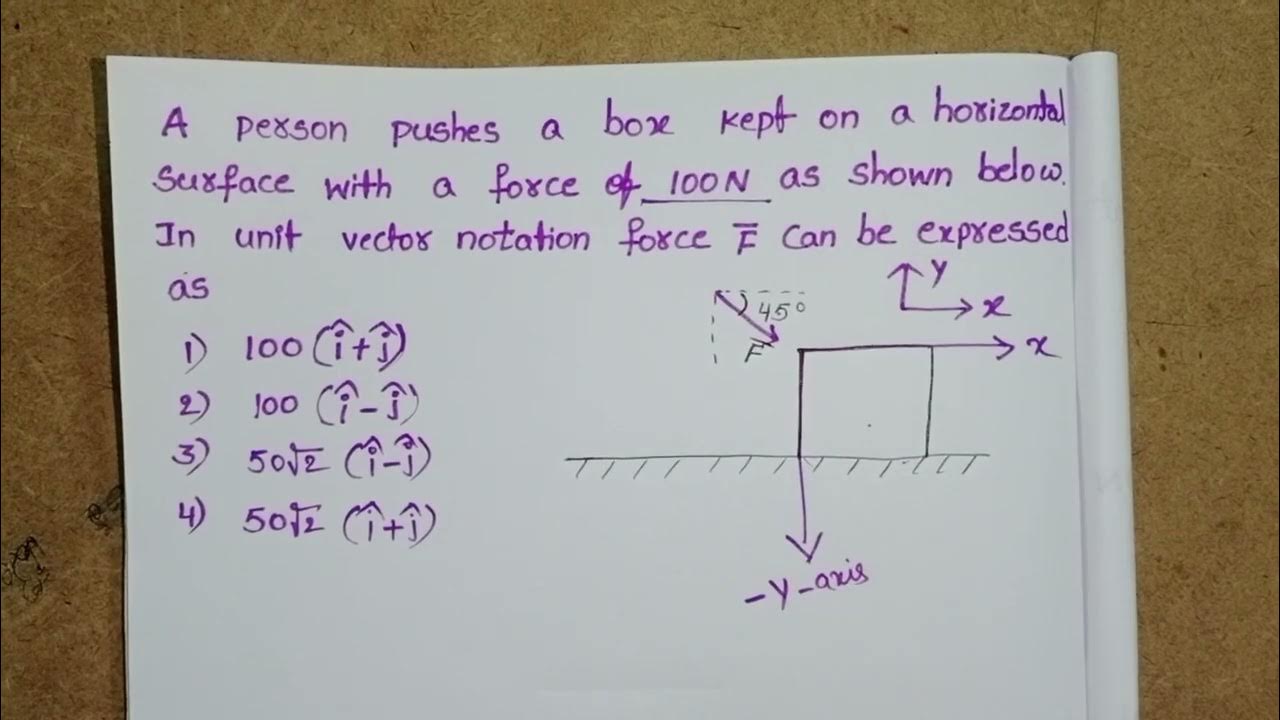 A person pushes a box kept on a horizontal
surface with a force of 100N as shown below.
In unit vector notation force F̅ can be expressed
as
1) 100 (î+ĵ)
2) 100 (î-ĵ)
3) 50√2 (î-ĵ)
4) 50√2 (î+ĵ)
Y
x
45°
F
x
-Y-axis